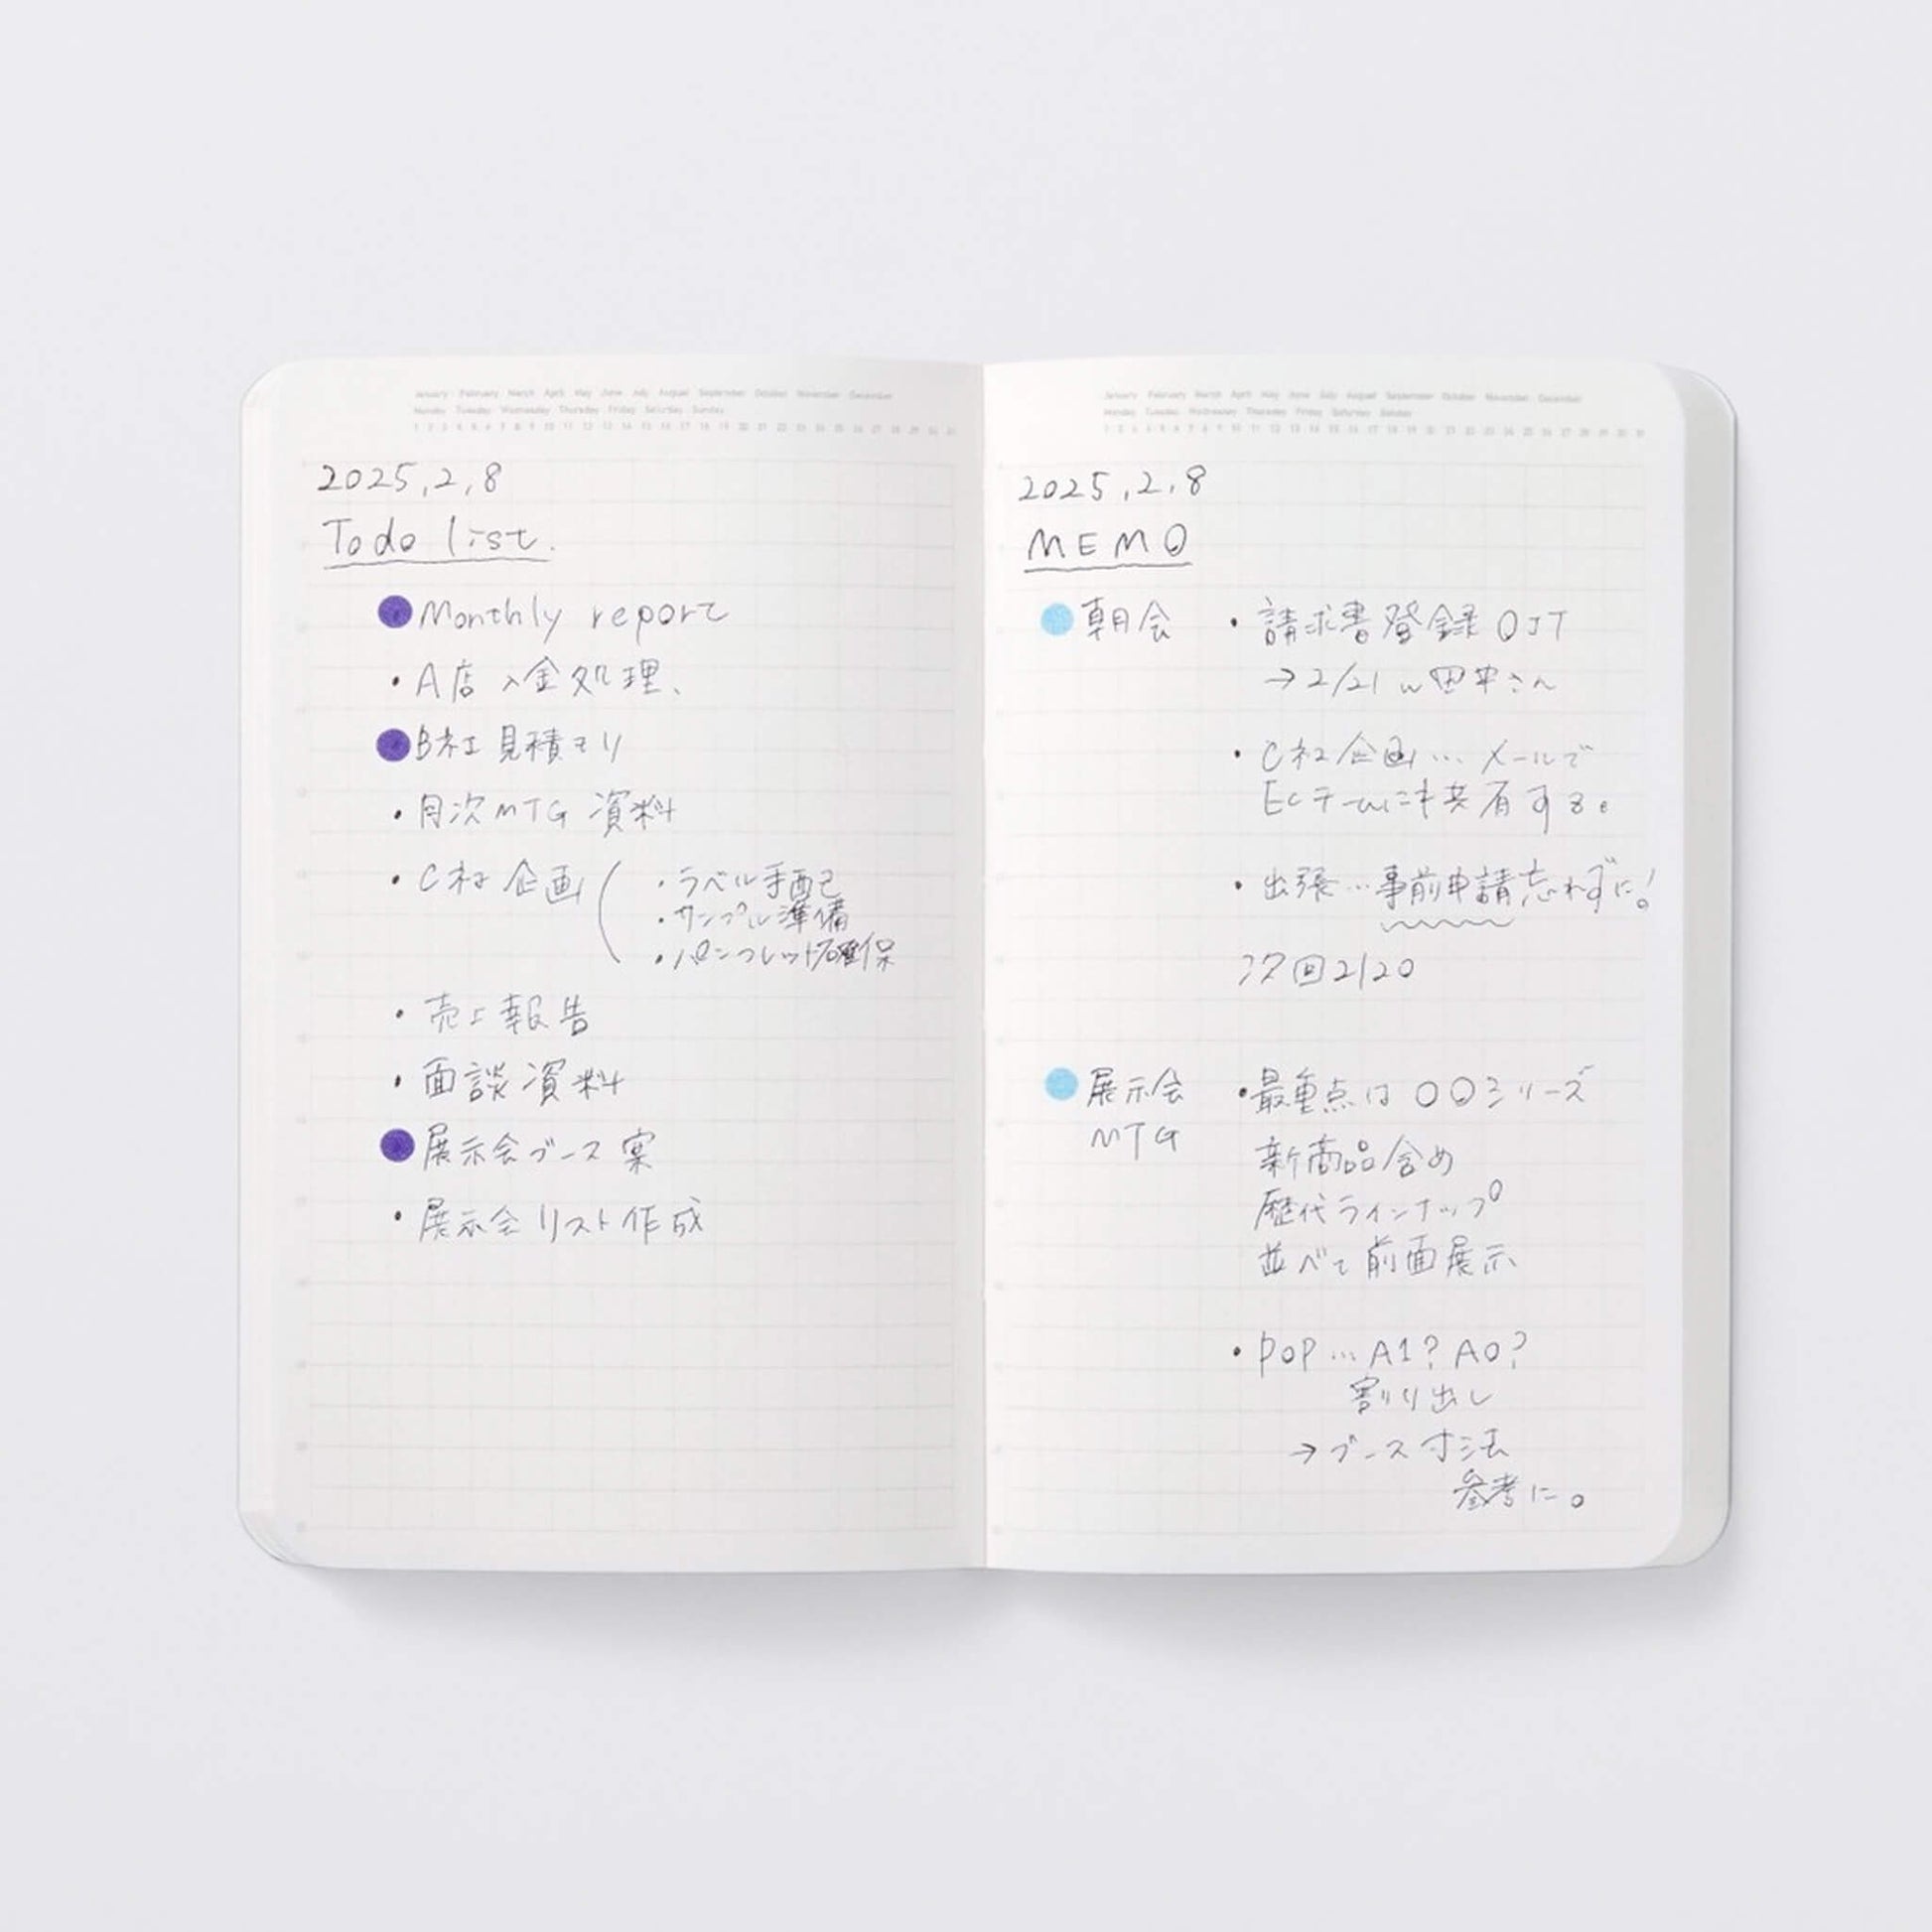 January February March April May June July August September October November December
Monday Tuesday Wednesday Thursday Friday Saturday Sunday
1 2 3 4 5 6 7 8 9 10 11 12 13 14 15 16 17 18 19 20 21 22 23 24 25 26 27 28 29 30 31
2025,2,8
Todo list.
Monthly report
・A店 入金処理、
B社 見積モリ
・月次MTG 資料
・C社 企画
・ラベル手配
・サンプル準備
・パンフレット確保
・売上報告
・面談資料
展示会ブース案
・展示会リスト作成
January February March April May June July August September October November December
Monday Tuesday Wednesday Thursday Friday Saturday Sunday
1 2 3 4 5 6 7 8 9 10 11 12 13 14 15 16 17 18 19 20 21 22 23 24 25 26 27 28 29 30 31
2025,2,8
MEMO
朝会 ・請求書登録OJT
→2/21 w田中さん
・C社企画… メールで
ECチームにも共有する。
・出張…事前申請忘れずに!。
次回2/20
展示会 ・最重点は〇〇シリーズ
MTG
新商品含め
歴代ラインナップ
並べて前面展示
・POP…A1?A0?
割り出し
→ブース寸法
参考に。